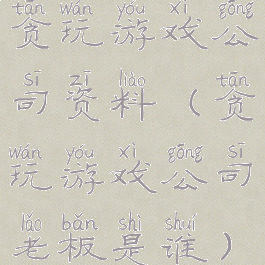 tān wán yóu xì gōng
贪玩游戏公
sī zī liào tān
司资料（贪
wán yóu xì gōng sī
玩游戏公司
lǎo bǎn shì shuí
老板是谁）